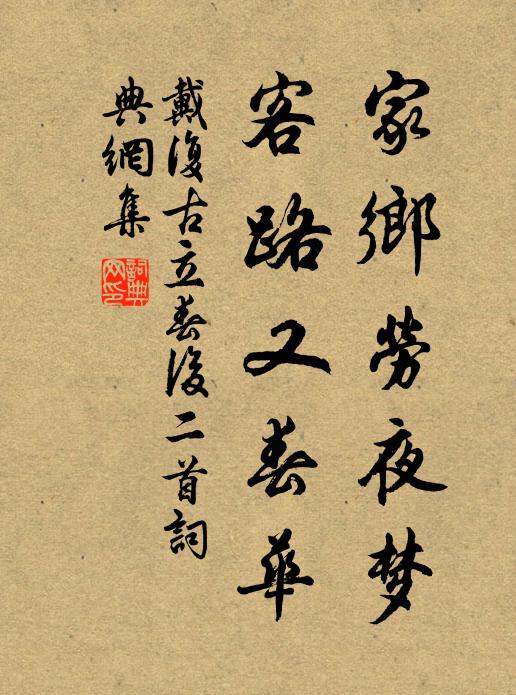 家鄉勞夜梦
客路又春華
戴復古立春後二首詞
典網集
詞典網印